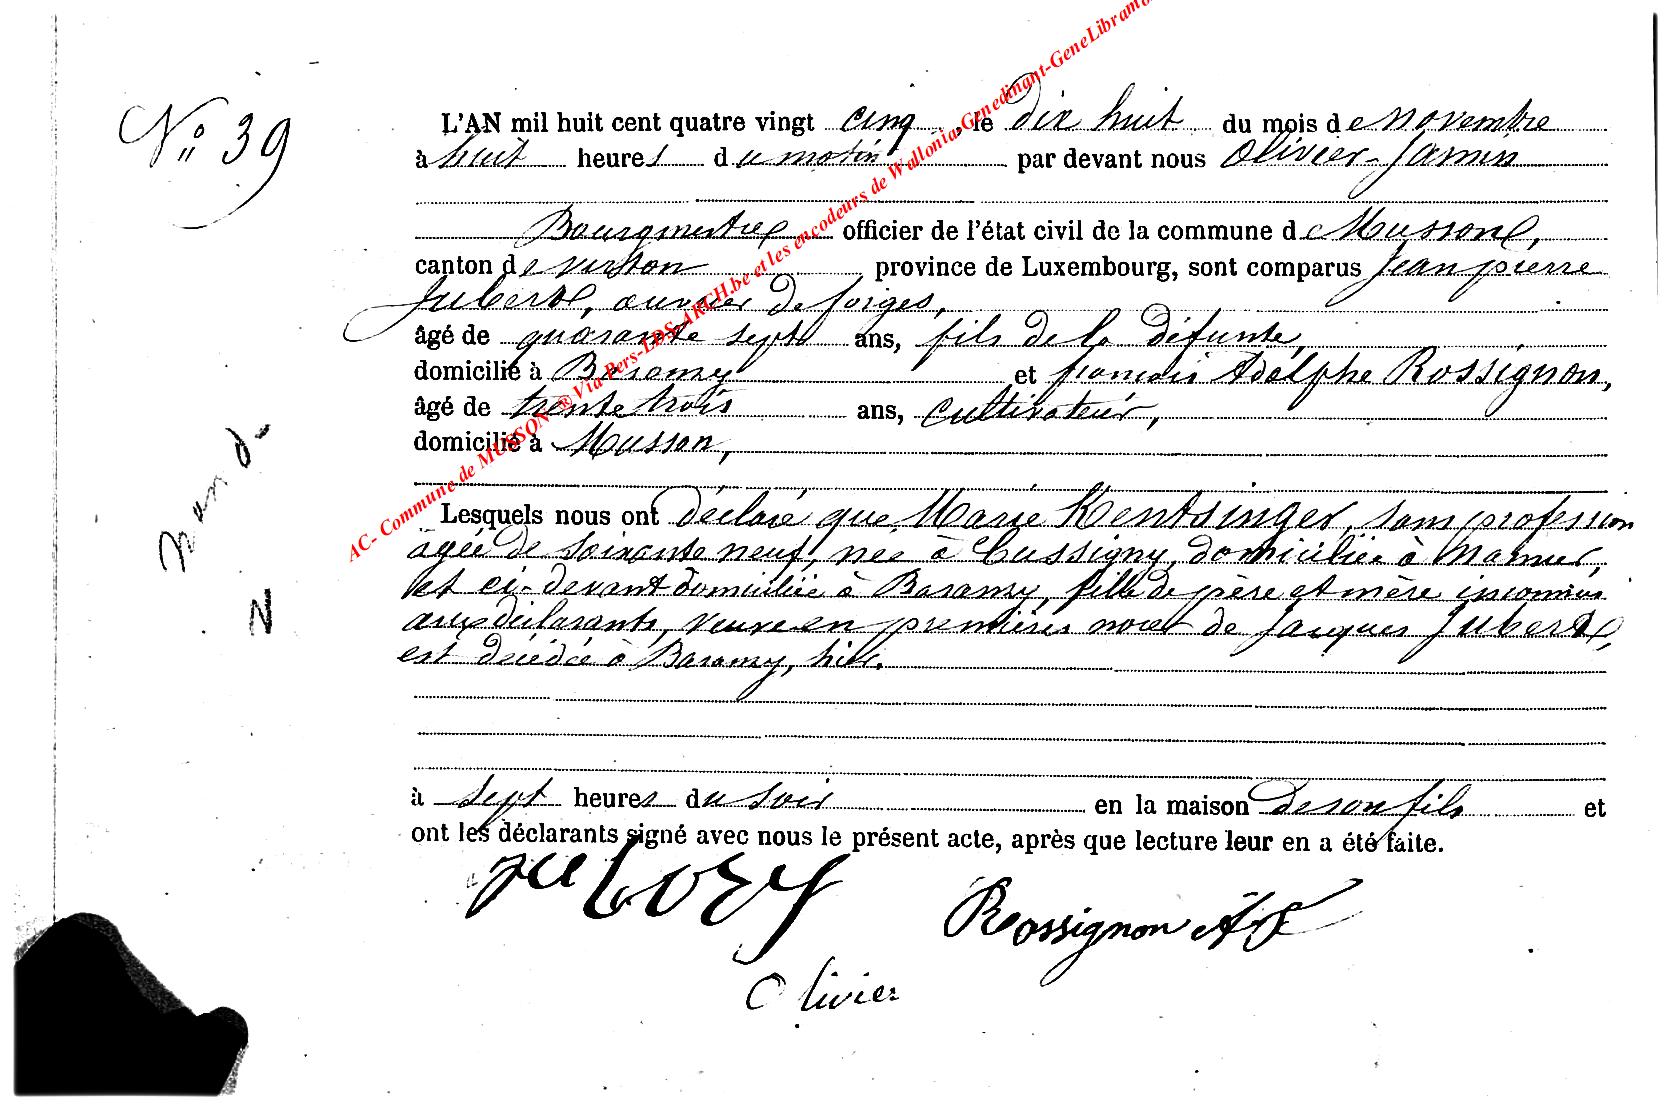 N° 39
L'AN mil huit cent quatre vingt cinq, le dix huit du mois de novembre
à huit heures du matin par devant nous Olivier Jamin
Bourgmestre officier de l'état civil de la commune de Musson,
canton de virton, province de Luxembourg, sont comparus Jean pierre
Jubert, ouvrier de forges,
âgé de quarante sept ans, fils de la défunte,
domicilié à Baranzy et françois Adolphe Rossignon,
âgé de trente trois ans, cultivateur,
domicilié à Musson,
Lesquels nous ont déclaré que Marie Kentsinger, sans profession
agée de soixante neuf, née à Cussigny, domiciliée à Namur,
et ci-devant domiciliée à Baranzy, fille de père et mère inconnus
aux déclarants, veuve en premières noces de Jacques Jubert,
est décédée à Baranzy, hier.
à sept heures du soir en la maison de son fils et
ont les déclarants signé avec nous le présent acte, après que lecture leur en a été faite.
Rossignon Af
Olivier
N
AC- Commune de MUSSON ® Via Pers-LDS-ARCH.be et les encodeurs de Wallonia-Genedinant-GeneLibramo